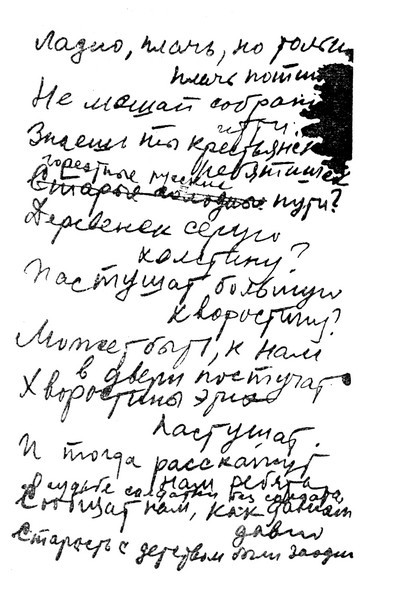 Ладно, плачь, но только
плачь потише
Не мешай собратьям
идти.
Знаешь ты крестьянских
ребятишек
горестные русские
Старые холодные пути?
Деревенек серую
холстину?
Пастушат большую
хворостину?
Может быть, к нам
в двери постучат
Хворостины этих
пастушат.
И тогда расскажут
нам ребята
О судьбе солдатки без солдата,
Сообщат нам, как
давно
Старость с детством были заодно